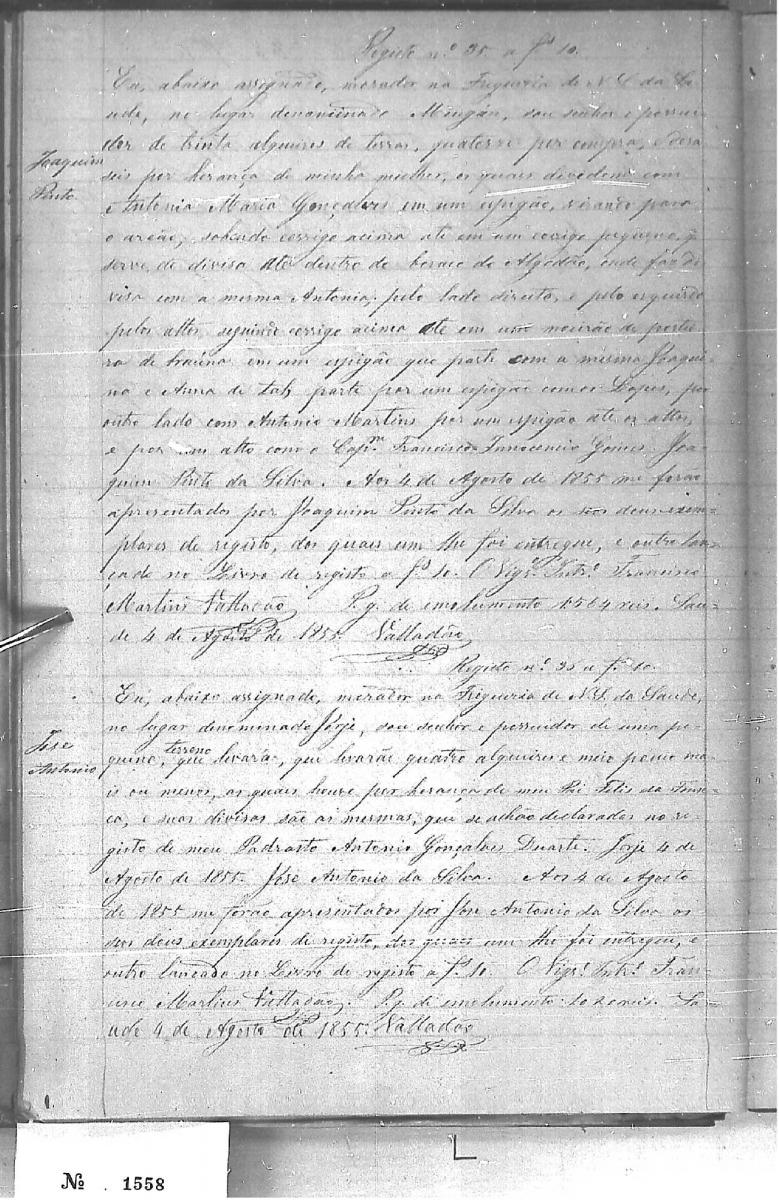 Registo n.º 35 a f.s 10.
Eu, abaixo assignado, morador na Freguezia de N. S. da Sa-
ude, no lugar denominado Mingán, sou senhor e possui-
dor de trinta alqueires de terras, quatorze por compra, e deza-
Joaquim
Pinto
seis por herança de minha mulher, os quais devedem com
Antonia Maria Gonçalves em um espigão, virando para
o areão, sobindo corrigo acima até em um corrigo pequeno, q̃
serve de divisa até dentro do de Algodão, onde faz di-
visa com a mesma Antonia, pelo lado direito, e pelo esquerdo
pelos altos, seguindo corrigo acima até em um moirão de porte-
ra de braúna em um espigão que parte com a mesma Joaqui-
na e Anna de tal, parte por um espigão com os Lopes, por
outro lado com Antonio Martins por um espigão até os altos,
e por um alto com o Cap.m Francisco Innocencio Gomes. Joa-
quim Pinto da Silva. Aos 4 de Agosto de 1855 me forão
apresentados por Joaquim Pinto da Silva os dous exem-
plares de registo, dos quais um lhe foi entregue, e outro lan-
çado no Livro de registo a f.s 10. O Vigr.º Intr.º Francisco
Martins Valladão P. g. de emolumento 1564 reis. Sau-
de 4 de Agosto de 1855. Valladão
Registo n.º 35 a f.s 10.
Eu, abaixo assignado, morador na Freguezia de N. S. da Saude,
no lugar denominado Jorje, sou senhor e possuidor de uma pe-
José
Antonio
quino, terreno que levará, que levarão quatro alqueires e meio pouco ma-
is ou menos, os quais houve por herança de meu Pai Felis da
e suas divisas são as mesmas, que se achão declaradas no re-
gisto de meu Padrasto Antonio Gonçalves Duarte. Jorje 4 de
Agosto de 1855. José Antonio da Silva. Aos 4 de Agosto
de 1855 me forão apresentados por José Antonio da Silva os
dous exemplares de registo, dos quais um lhe foi entregue, e
outro lancado no Livro de registo a f.s 10. O Vigr.º Intr.º Fran-
cisco Martins Valladão. P. g. de emolumento reis. Sa-
ude 4 de Agosto de 1855. Valladão
№ . 1558